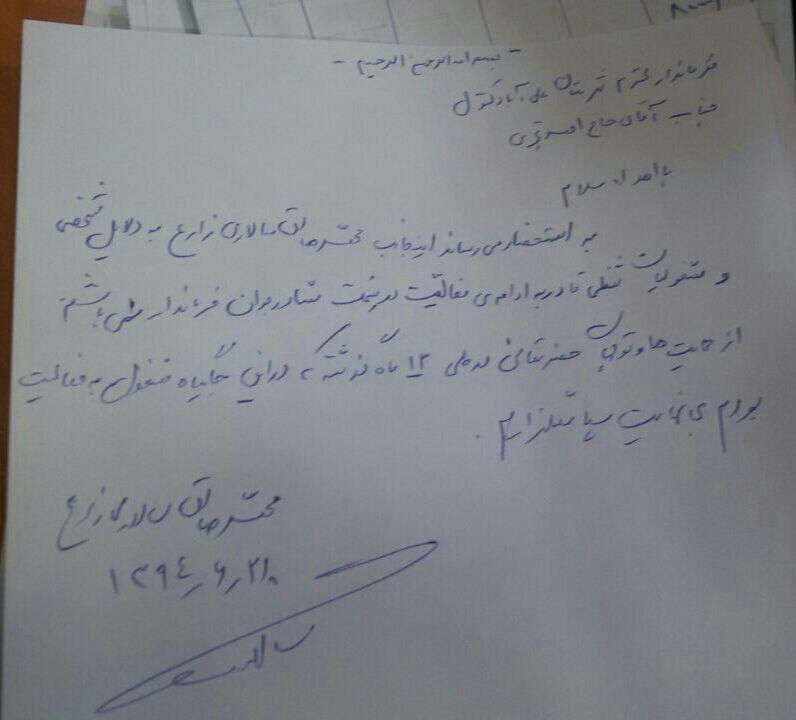 - بسم الله الرحمن الرحیم -
فرماندار محترم شهرستان علی آباد کتول
جناب آقای حاج
با اهداء سلام
به استحضار می رساند اینجانب محمد صادق سالاری زارع به دلایل شخصی
و مشغولیات شغلی قادر به ادامه ی فعالیت در پست مشاور جوان فرماندار نمی باشم
از حمایت ها و توجهات حضرتعالی در طی ۱۳ ماه گذشته که در این جایگاه مشغول به فعالیت
بودم بی نهایت سپاسگزارم .
محمد صادق سالاری زارع
۱۳۹۴٫۶٫۲۱